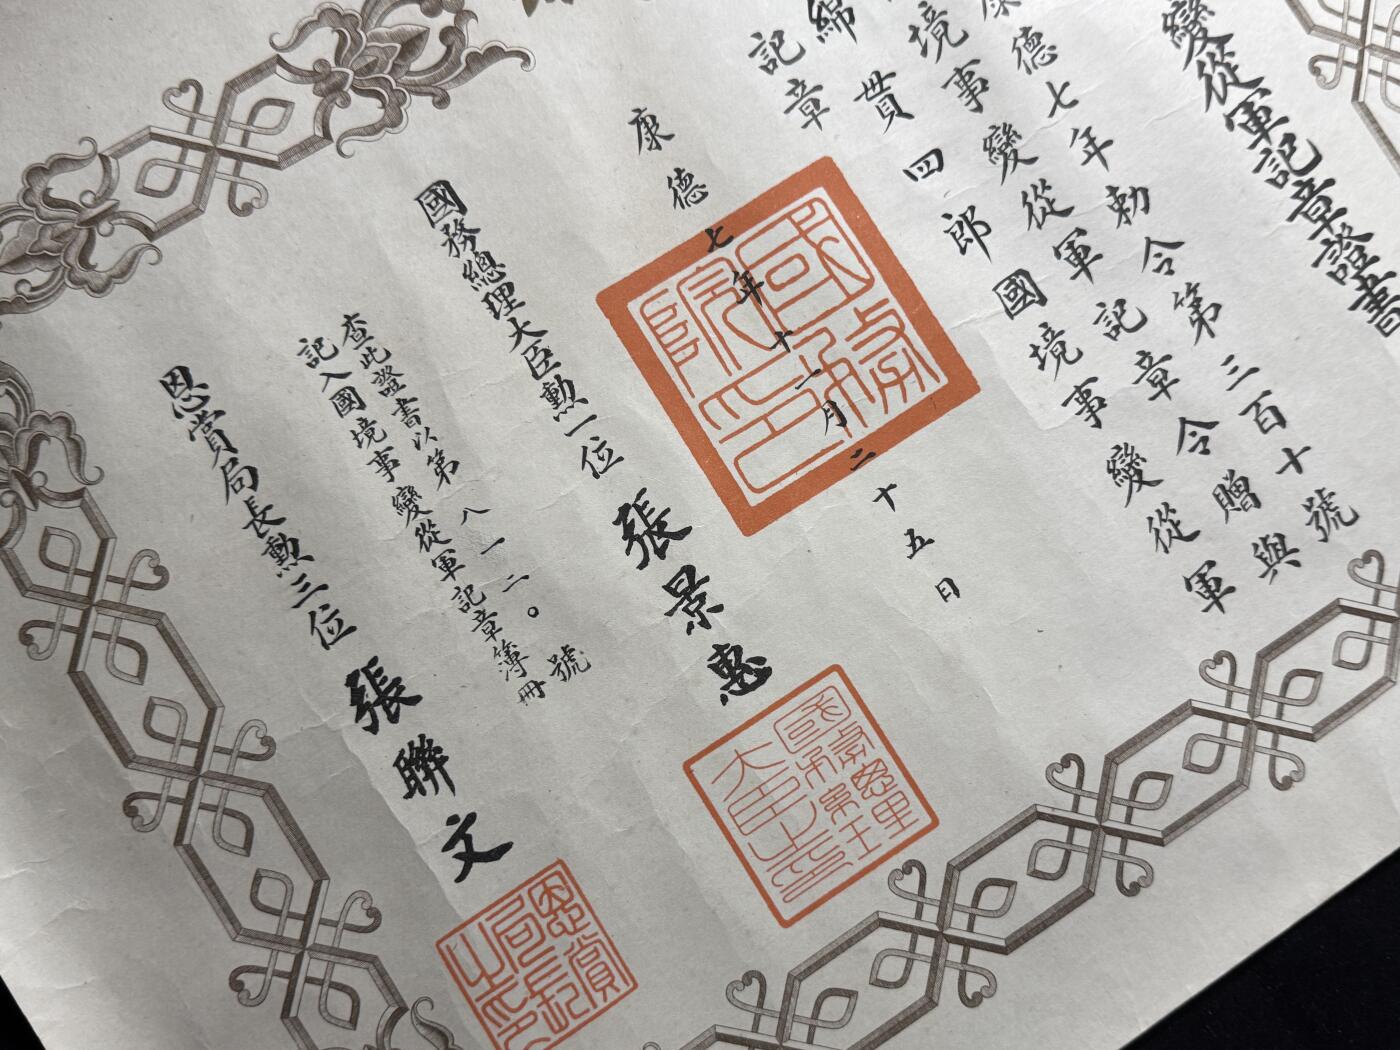 變從軍記章證書
康德七年勅令第三百十號
境事變從軍記章令贈與
綿貫四郎國境事變從軍
記章
康德七年十一月二十五日
國務院之印
國務總理大臣勳一位張景惠
國務總理大臣之印
查此證書以第八一二〇號
記入國境事變從軍記章簿冊
恩賞局長勳三位張聯文
恩賞局長之印